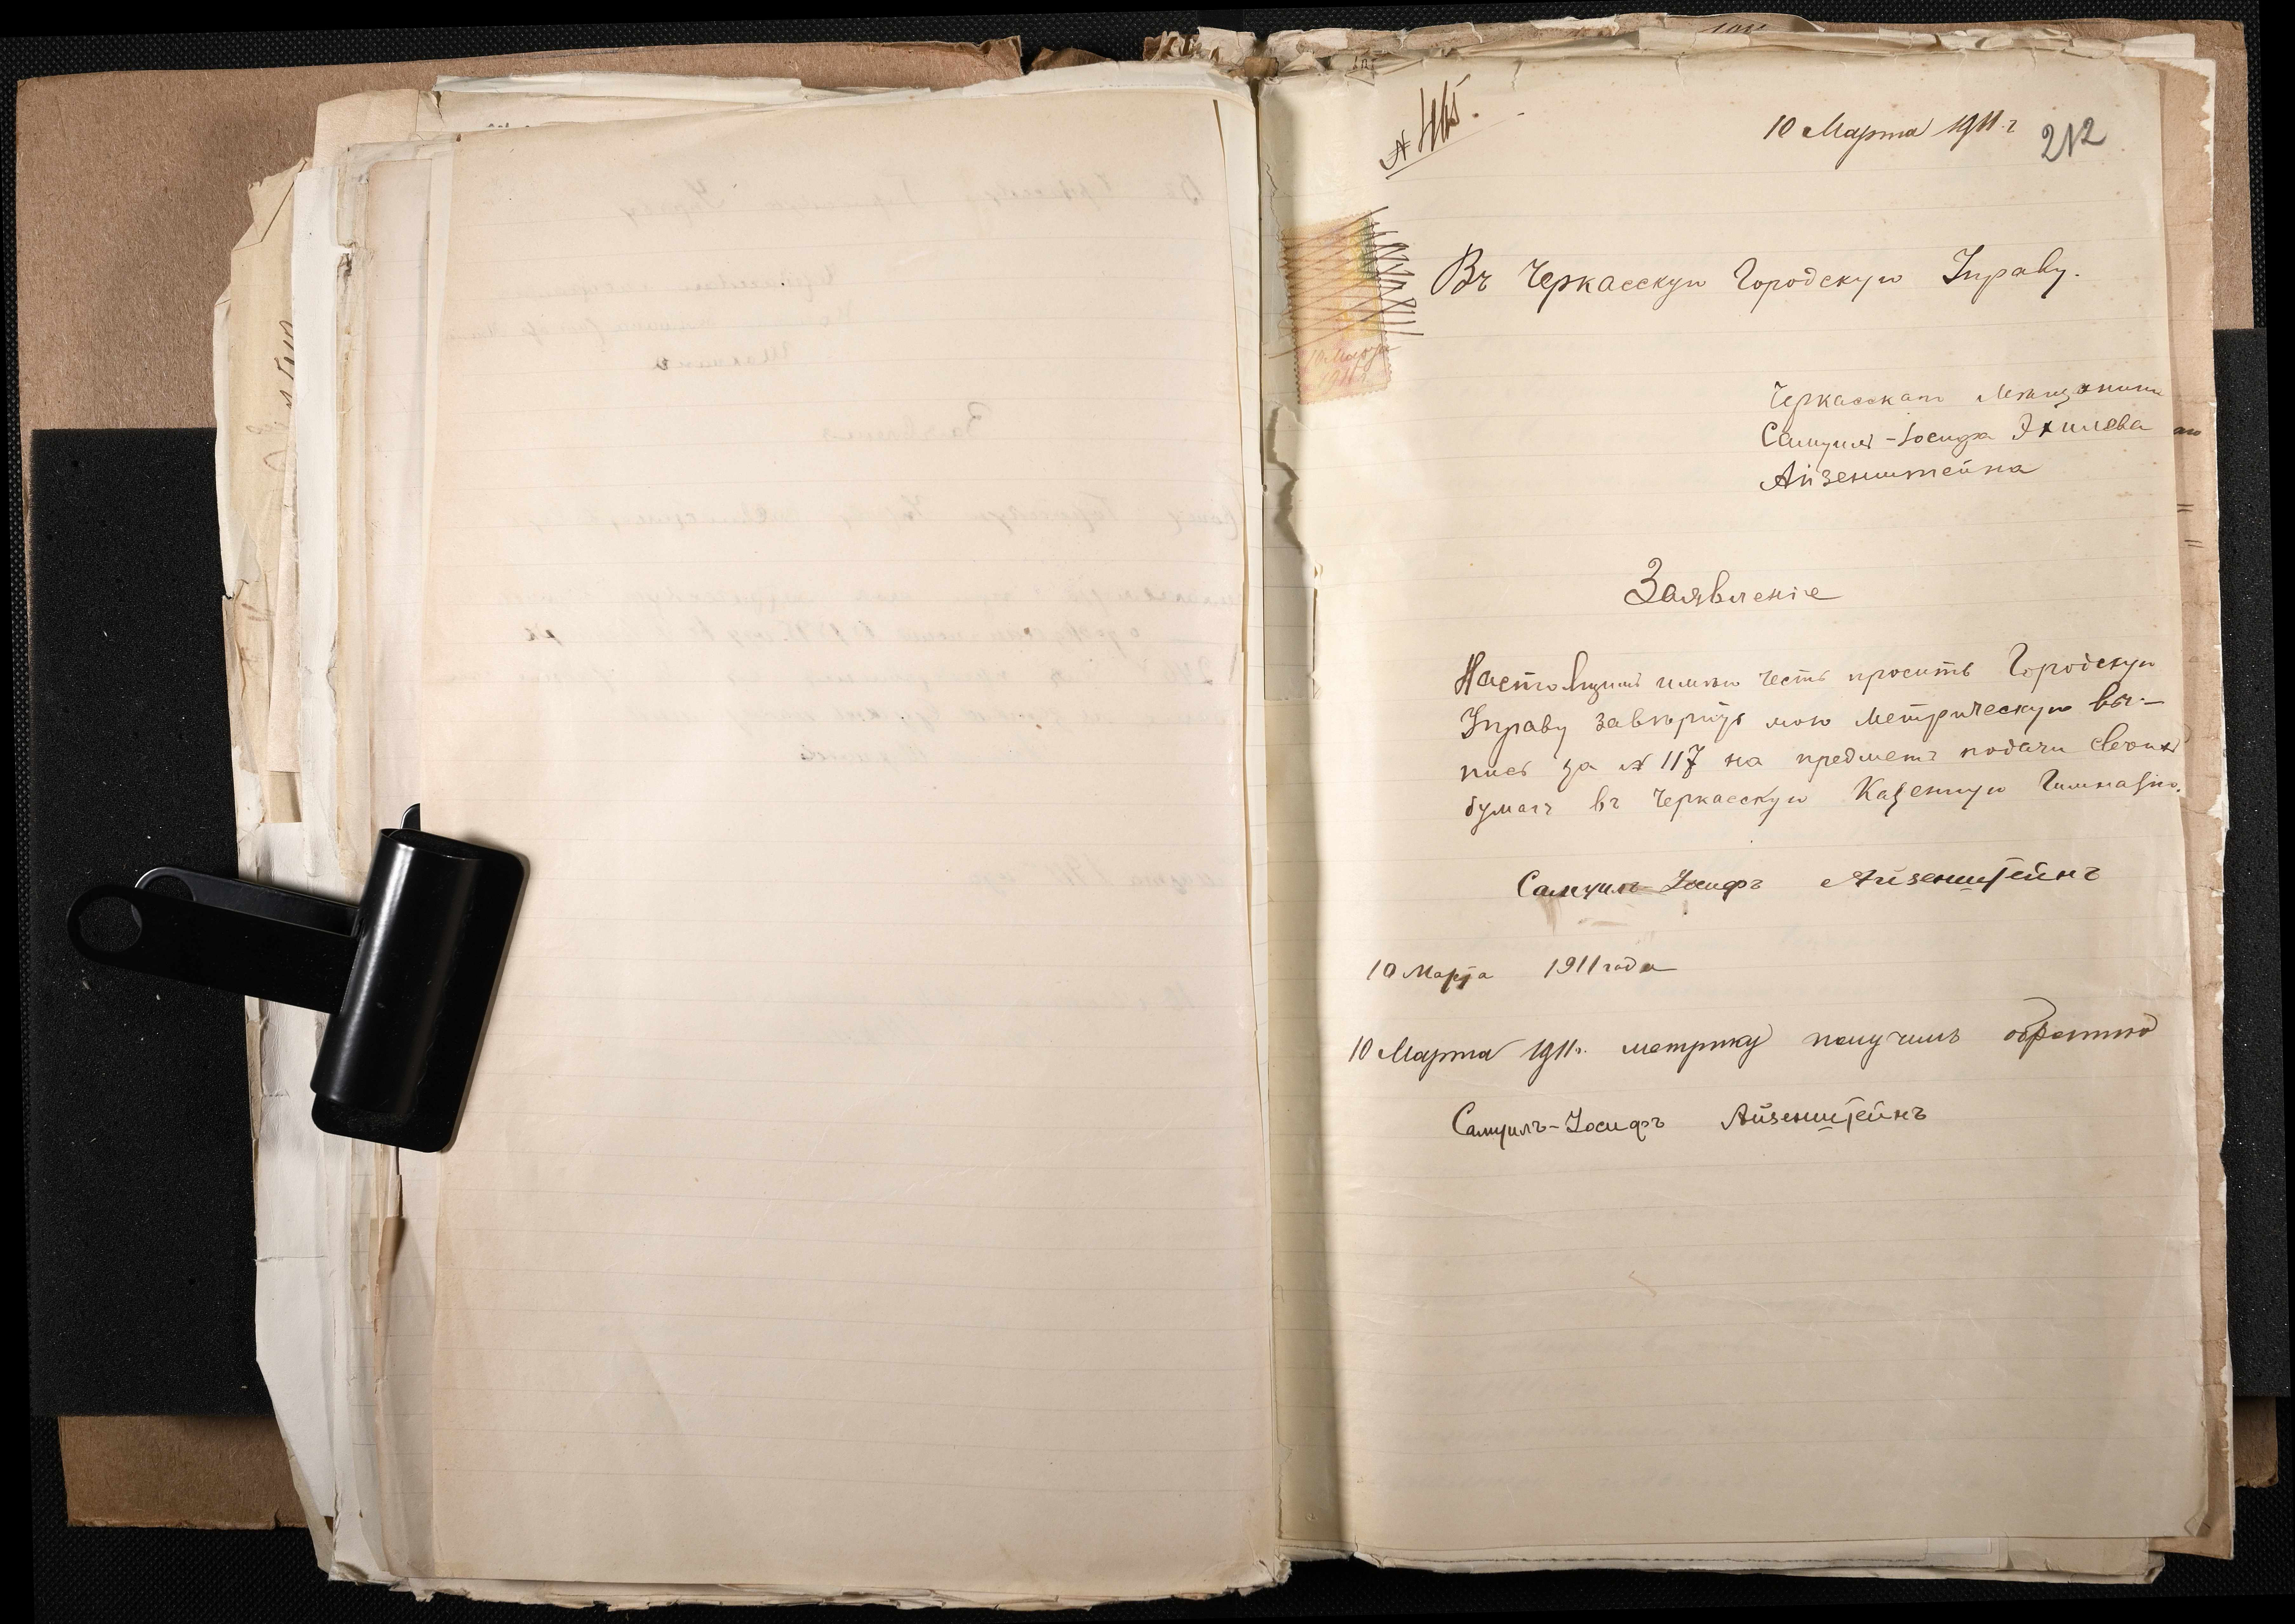 № 465.
10 Марта 1911 г
212
Въ Черкасскую Городскую Управу.
10 Марта
1911 г.
Черкасскаго Мѣщанина
Самуилъ-Іосифа Эхилева
Айзенштейна
Заявленіе
Настоящимъ имѣю честь просить Городскую
Управу завѣрить мою Метрическую вы-
пись за № 117 на предметъ подачи своихъ
бумагъ въ Черкасскую Казенную Гимназію.
Самуилъ-Іосифъ Айзенштейнъ
10 Марта 1911 года
10 Марта 1911 г. метрику получилъ обратно
Самуилъ-Іосифъ Айзенштейнъ